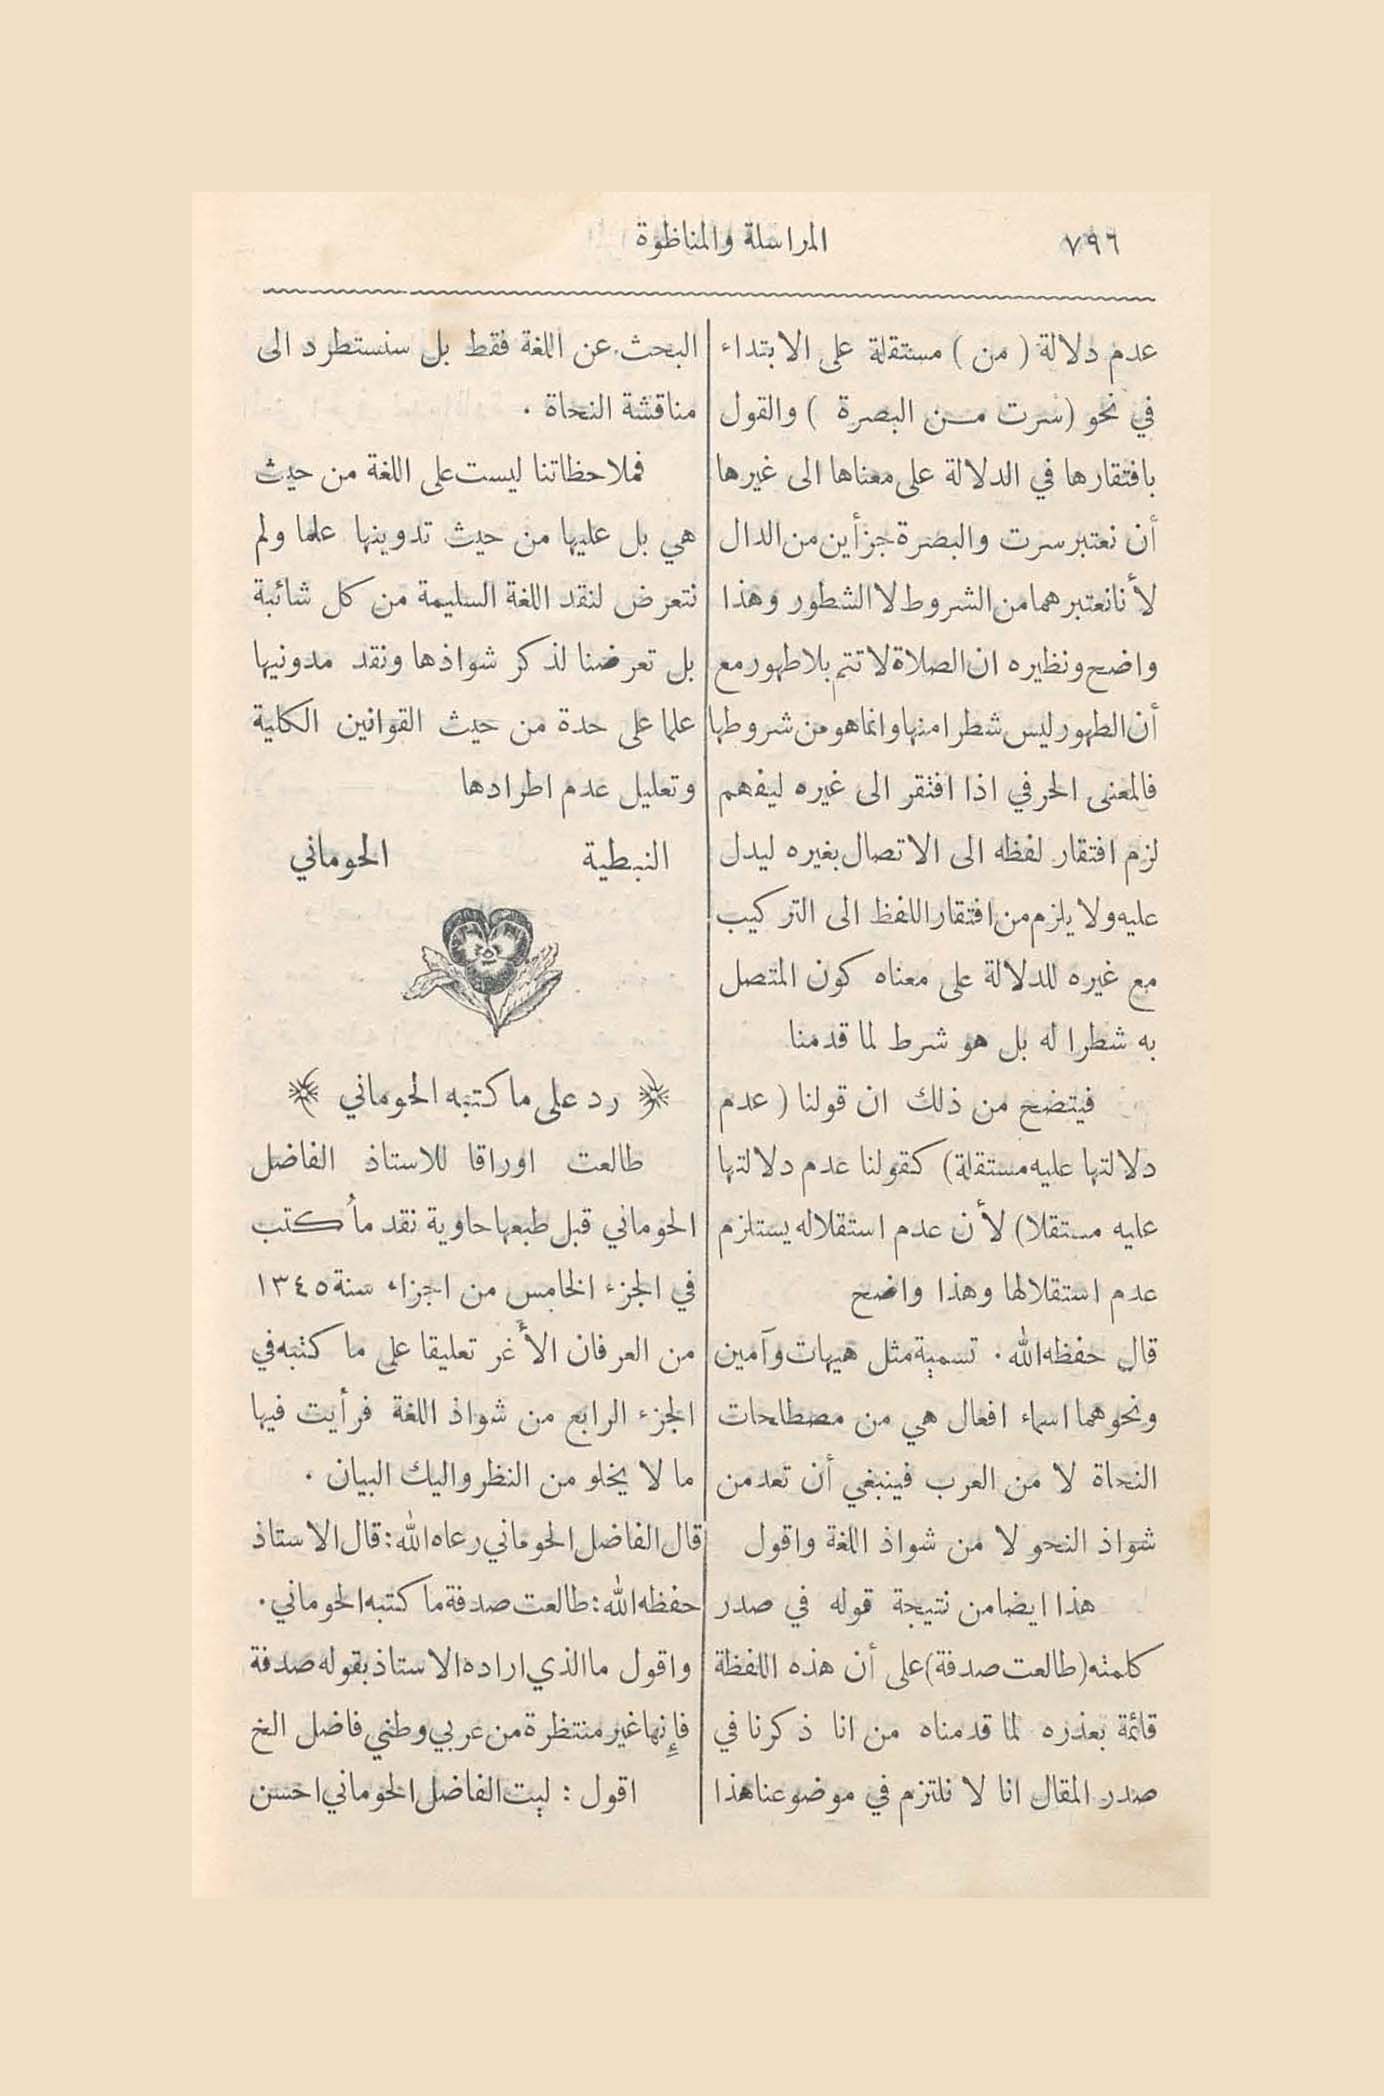 ٧٩٦
المراسلة والمناظرة
عدم دلالة ( من ) مستقلة على الابتداء
في نحو ( سرت مـــن البصرة ) والقول
بافتقارها في الدلالة على معناها الى غيرها
أن نعتبر سرت والبصرة جزأين من الدال
لأنا نعتبرهما من الشروط لا الشطور وهذا
واضح ونظيره ان الصلاة لا تتم بلا طهور مع
أن الطهور ليس شطرا منها وانما هو من شروطها
فالمعنى الحرفي اذا افتقر الى غيره ليفهم
لزم افتقار لفظه الى الاتصال بغيره ليدل
عليه ولا يلزم من افتقار اللفظ الى التركيب
مع غيره للدلالة على معناه كون المتصل
به شطرا له بل هو شرط لما قدمنا
فيتضح من ذلك ان قولنا ( عدم
دلالتها عليه مستقلة) كقولنا عدم دلالتها
عليه مستقلا) لأن عدم استقلاله يستلزم
عدم استقلالها وهذا واضح
قال حفظه الله . تسمية مثل هيهات وآمين
ونحوهما اسماء افعال هي من مصطلحات
النحاة لا من العرب فينبغي أن تعد من
شواذ النحو لا من شواذ اللغة واقول
هذا ايضا من نتيجة قوله في صدر
كلمته (طالعت صدفة) على أن هذه اللفظة
قائمة بعذره لما قدمناه من انا ذكرنا في
صدر المقال انا لا نلتزم في موضوعنا هذا
البحث عن اللغة فقط بل سنستطرد الى
مناقشة النحاة .
فملاحظاتنا ليست على اللغة من حيث
هي بل عليها من حيث تدوينها علما ولم
نتعرض لنقد اللغة السليمة من كل شائبة
بل تعرضنا لذكر شواذها ونقد مدونيها
علما على حدة من حيث القوانين الكلية
وتعليل عدم اطرادها
النبطية الحوماني
رد على ما كتبه الحوماني
طالعت اوراقا للاستاذ الفاضل
الحوماني قبل طبعها حاوية نقد ما كتب
في الجزء الخامس من اجزاء سنة ١٣٤٥
من العرفان الأغر تعليقا على ما كتبه في
الجزء الرابع من شواذ اللغة فرأيت فيها
ما لا يخلو من النظر واليك البيان .
قال الفاضل الحوماني رعاه الله : قال الاستاذ
حفظه الله : طالعت صدفة ما كتبه الحوماني .
واقول ما الذي اراده الاستاذ بقوله صدفة
فإنها غير منتظرة من عربي وطني فاضل الخ
اقول : ليت الفاضل الحوماني احسن